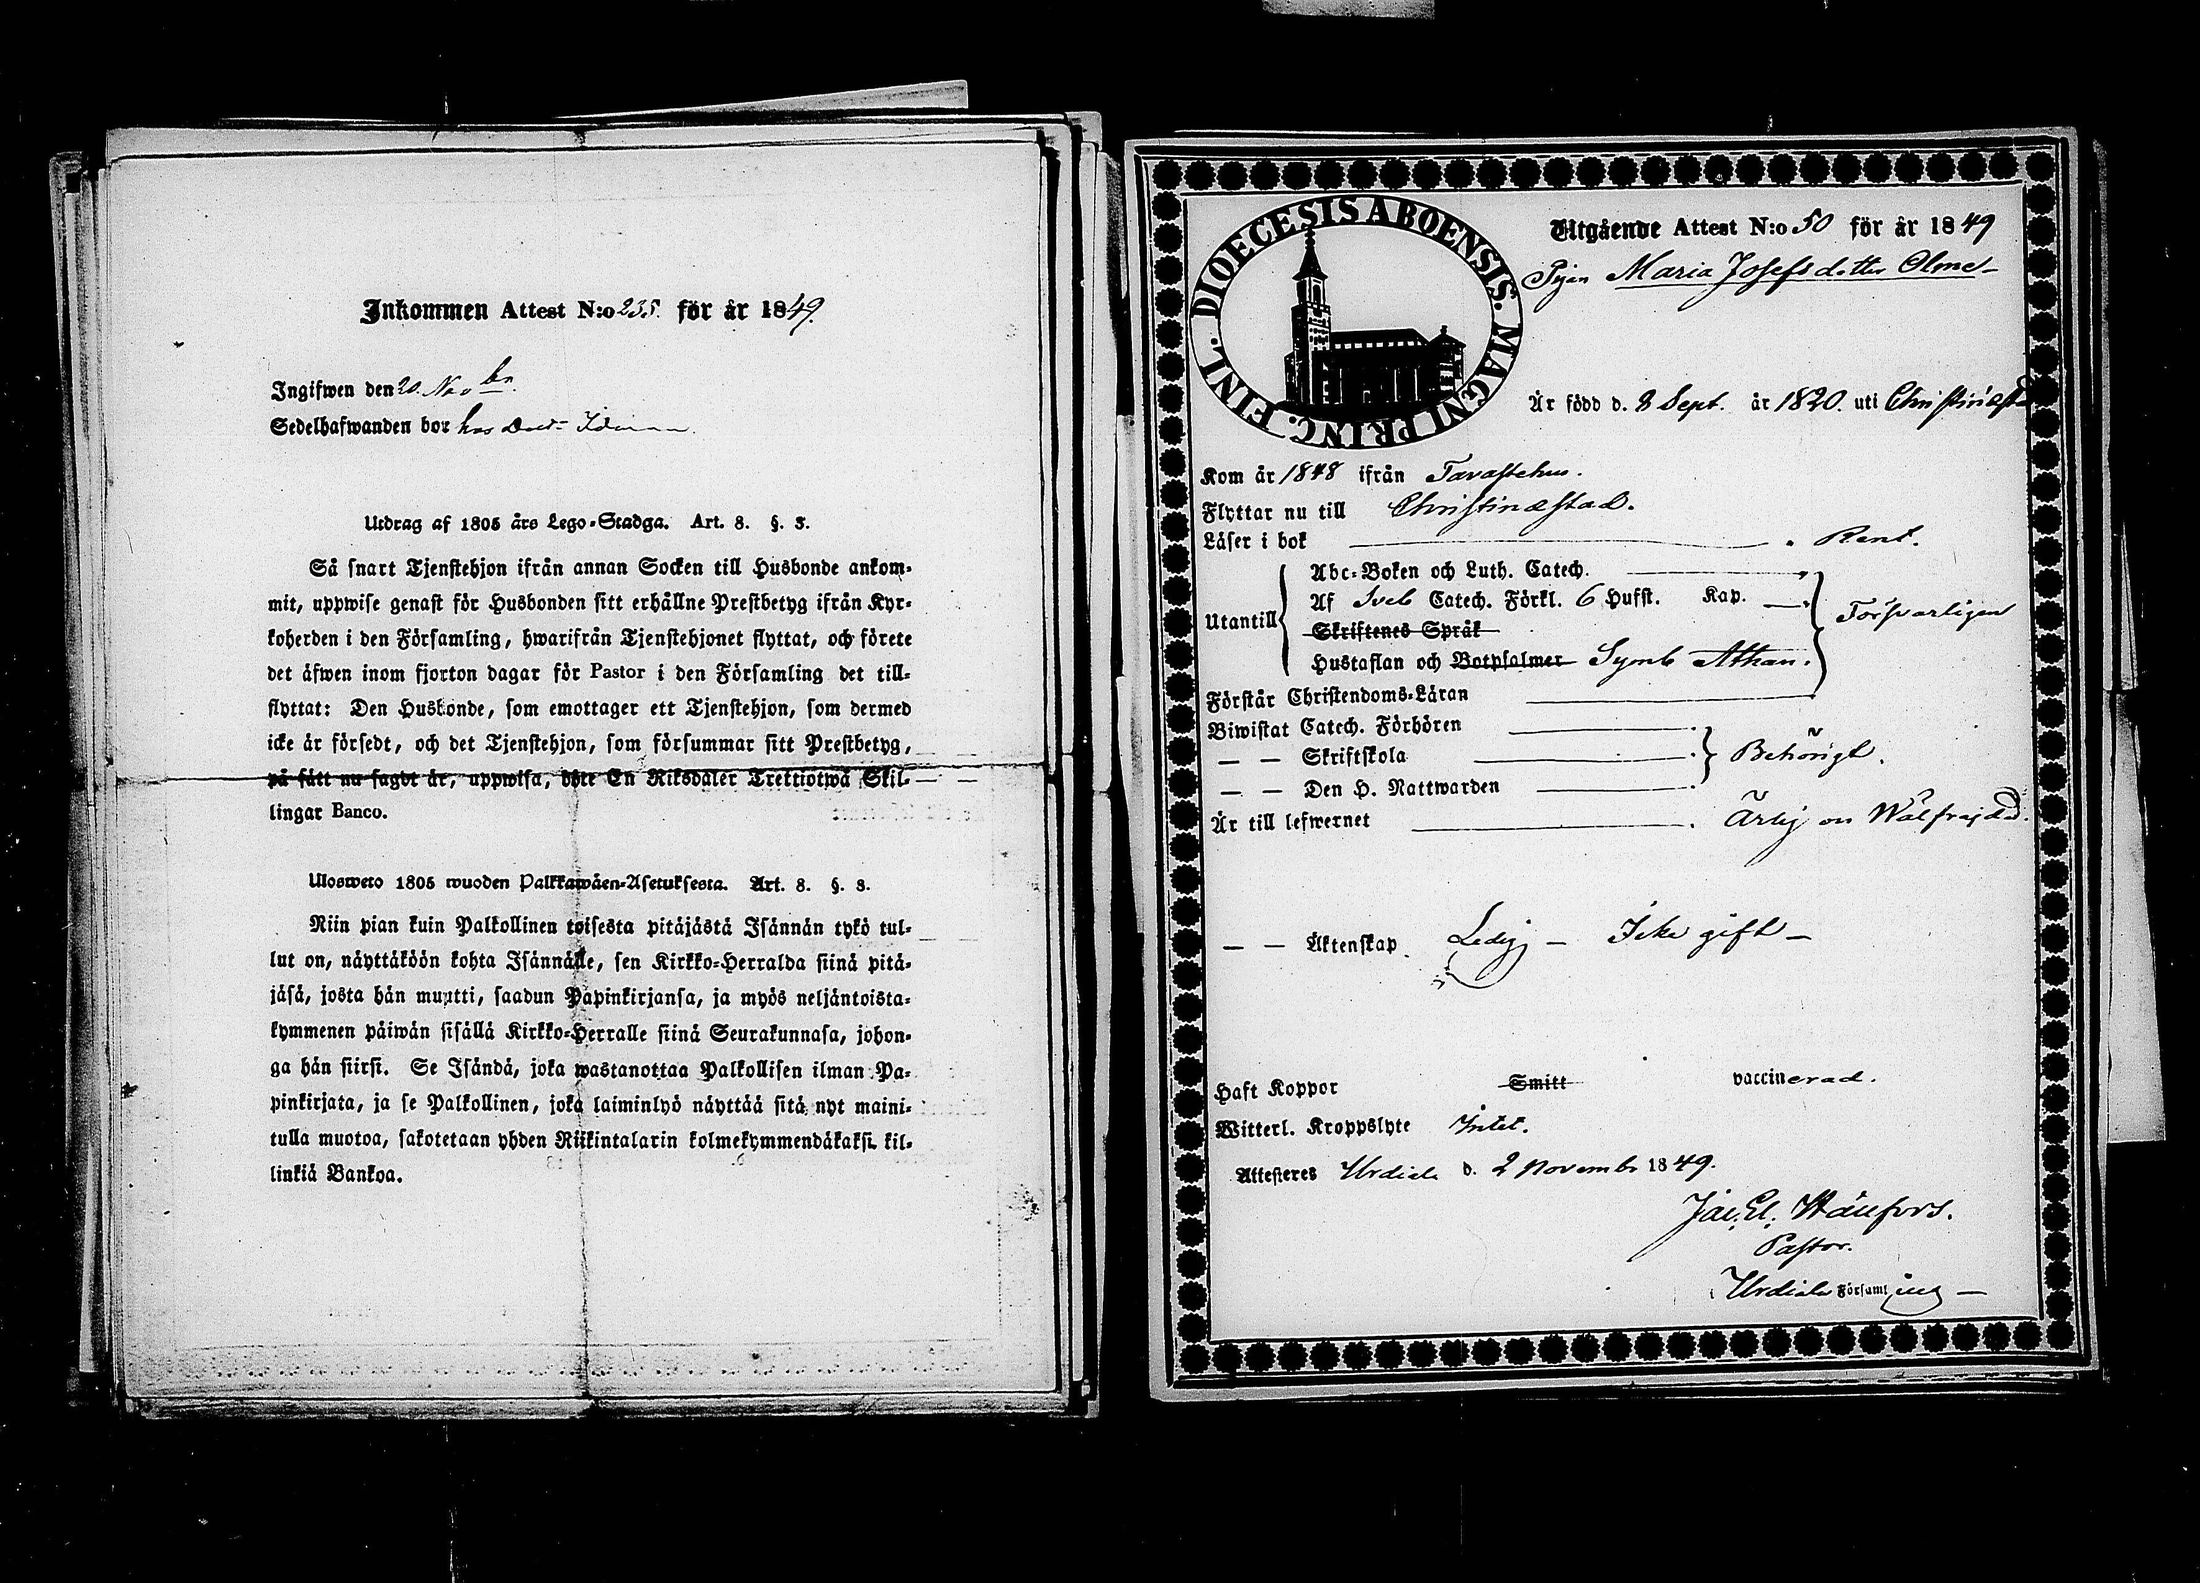 Inkommen Attest N:o 235. för år 1849.
Ingifwen den 20. Novbr.
Sedelhafwanden bor hos
Utdrag af 1805 års Lego-Stadga. Art. 8. §. 3.
Så snart Tjenstehjon ifrån annan Socken till Husbonde ankom-
mit, uppwise genast för Husbonden sitt erhållne Prestbetyg ifrån Kyr-
koherden i den Församling, hwarifrån Tjenstehjonet flyttat, och förete
det äfwen inom fjorton dagar för Pastor i den Församling det till-
flyttat: Den Husbonde, som emottager ett Tjenstehjon, som dermed
icke är försedt, och det Tjenstehjon, som försummar sitt Prestbetyg,
på sätt nu sagdt är, uppwisa, böte En Riksdaler Trettiotwå Skil-
lingar Banco.
Ulosweto 1805 wuoden Palkkawäen-Asetuksesta. Art. 8. §. 3.
Niin pian kuin Palkollinen toisesta pitäjästä Isännän tykö tul-
lut on, näyttäköön kohta Isännälle, sen Kirkko-Herralda siinä pitä-
jäsä, josta hän muutti, saadun Papinkirjansa, ja myös neljäntoista-
kymmenen päiwän sisällä Kirkko-Herralle siinä Seurakunnasa, johon-
ga hän siirsi. Se Isändä, joka wastanottaa Palkollisen ilman Pa-
pinkirjata, ja se Palkollinen, joka laiminlyö näyttää sitä nyt maini-
tulla muotoa, sakotetaan yhden Riikintalarin kolmekymmendäkaksi kil-
linkiä Bankoa.
DIOECESIS ABOENSIS. MAGNI PRINC. FINL.
Utgående Attest N:o 50 för år 1849
Pijan Maria Josefsdotter Olme-
Är född d. 8 Sept. år 1820. uti Christinæstad
Kom år 1848 ifrån Tavastehus.
Flyttar nu till Christinæstad.
Läser i bok Rent.
Utantill
Abc-Boken och Luth. Catech.
Af Sveb Catech. Förkl. 6 Hufst. Kap.
Skriftenes Språk
Hustaflan och Botpsalmer Symb Athan.
Försvarligen
Förstår Christendoms-Läran
Biwistat Catech. Förhören
— — Skriftskola
— — Den H. Nattwarden
Behörigt.
Är till lefwernet Ärlig och Wälfrejdad.
— — Äktenskap Ledig — Icke gift —
Haft Koppor Smitt vaccinerad.
Witterl. Kroppslyte Intet.
Attesteres Urdiala d. 2 November 1849.
Pastor.
i Urdiala Församling —